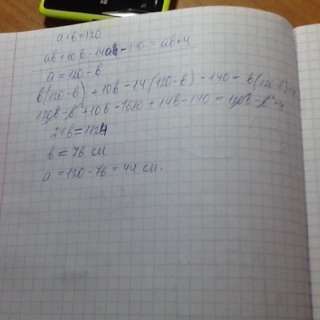 a+b=120
ab+10b-14a-140=ab+4
a=120-b
b(120-b)+10b-14(120-b)-140=b(120-b)+4
120b-b²+10b-1680+14b-140=120b-b²+4
24b=1824
b=76 см
a=120-76=44 см.